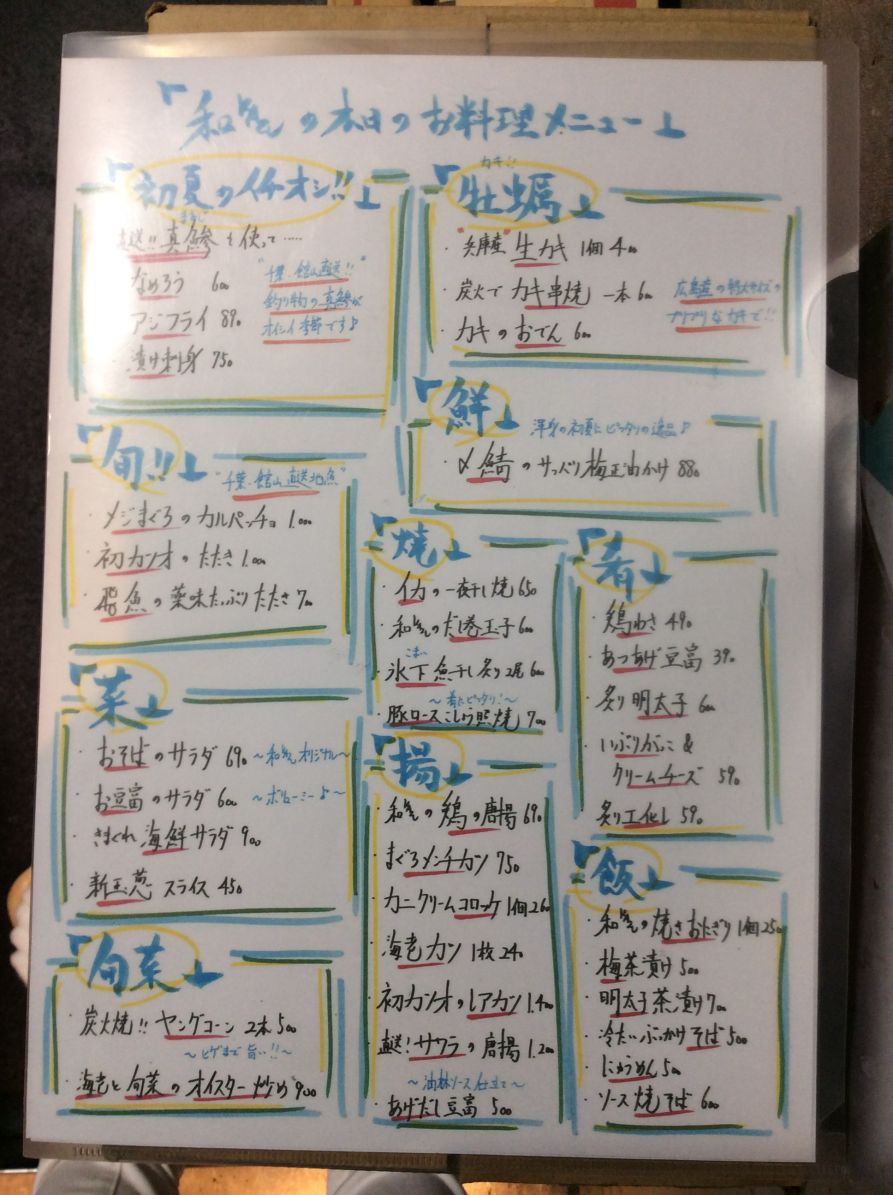 「和 の本日のお料理メニュー」
「初夏のイチオシ!!」
直送!! 真鯵を使って……
まあじ
なめろう 600
アジフライ 890
漬け刺身 750
"千葉・館山直送!!
釣り物の真鯵が
オイシイ季節です♪
カキ!!
「牡蠣」
・兵庫産 生カキ 1個 400
・炭火で カキ串焼 一本 600
・カキのおでん 600
広島産の特大サイズの
プリプリなカキで!!
「鮮」
渾身の初夏にピッタリの逸品♪
・〆鯖のサッパリ梅正油かけ 880
「旬!!」
"千葉・館山直送地魚"
・メジまぐろのカルパッチョ 1.000
・初カツオのたたき 1.000
・飛魚の薬味たっぷりたたき 700
「焼」
・イカの一夜干し焼 650
・和 のだし巻玉子 600
こまい
・氷下魚干し炙り 2尾 600
～肴にピッタリ!～
・豚ロースこしょう照焼 700
「肴」
・鶏わさ 490
・あつあげ豆富 390
・炙り明太子 600
・いぶりがっこ &
クリームチーズ 590
・炙りエイヒレ 590
「菜」
・おそばのサラダ 690 ～和 オリジナル～
・お豆富のサラダ 600 ～ボリューミー♪～
・きまぐれ 海鮮サラダ 900
・新玉葱 スライス 450
「揚」
・和 の鶏の唐揚 690
・まぐろメンチカツ 750
・カニクリームコロッケ 1個 260
・海老カツ 1枚 240
・初カツオのレアカツ 1.400
・直送! サワラの唐揚 1.200
～油淋ソース仕立て～
・あげだし豆富 500
「飯」
・和 の焼きおにぎり 1個 250
・梅茶漬け 500
・明太子茶漬け 700
・冷たいぶっかけそば 500
・にゅうめん 500
・ソース焼そば 600
「旬菜」
・炭火焼!! ヤングコーン 2本 500
～ヒゲまで旨い!!～
・海老と旬菜のオイスター炒め 900